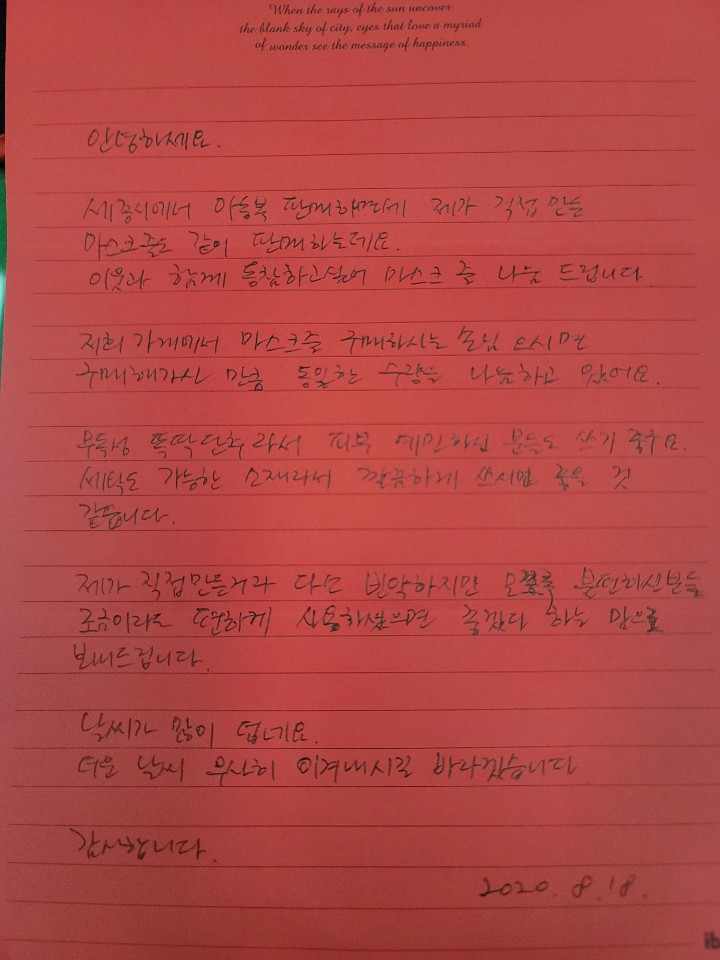 When the rays of the sun uncover
the blank sky of city, eyes that love a myriad
of wonder see the message of happiness.
안녕하세요.
세종시에서 아동복 판매하면서 제가 직접 만든
마스크줄도 같이 판매하는데요.
이웃과 함께 동참하고싶어 마스크 줄 나눔 드립니다.
저희 가게에서 마스크줄 구매하시는 손님 오시면
구매해가신 만큼 동일한 수량을 나눔하고 있어요.
무독성 똑딱단추라서 피부 예민하신 분들도 쓰기 좋구요.
세탁도 가능한 소재라서 깔끔하게 쓰시면 좋을 것
같습니다.
제가 직접만든거라 다소 빈약하지만 불편하신분들
조금이라도 편하게 사용하셨으면 좋겠다 하는 맘으로
보내드립니다.
날씨가 많이 덥네요.
더운 날씨 무사히 이겨내시길 바라겠습니다
감사합니다.
2020. 8. 18.
ib